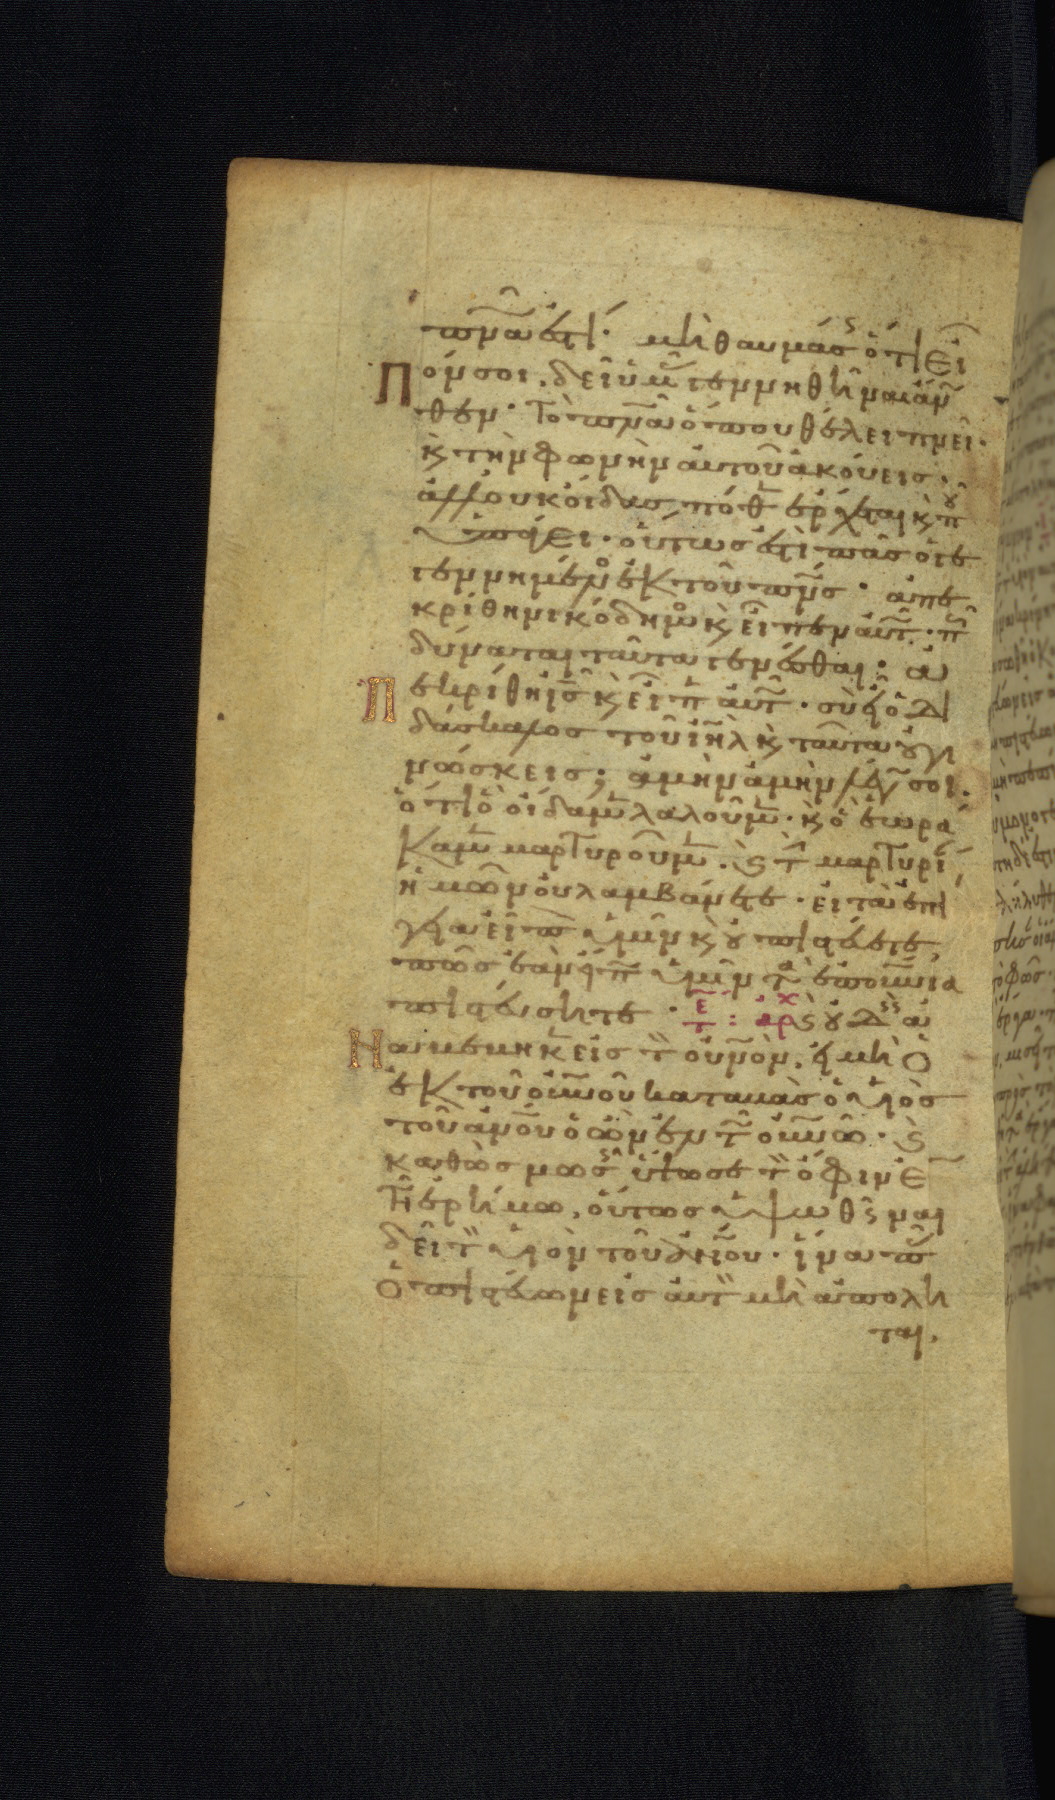 πνα ἐστί· μὴ θαυμάσς ὅτι εἶ
Πόν σοι. δεῖ ὑμ γεννηθῆναι ἄν
θεν· Τὸ πνα ὅπου θέλει πνεῖ·
κ τὴν φωνὴν αὐτοῦ ἀκούεις·
ἀλλ οὐκ οἶδας πόθ ἔρχεται κ π
ὑπάγει· οὕτως ἐστὶ πᾶς ὁ γε
γεννημένο ἐκ τοῦ πνς· ἀπε
κρίθη νικόδημο κ εἶπεν αὐτ· π
δύναται ταῦτα γενέσθαι· ἀ
Πεκρίθη ὁ ις κ εἶπ αὐτ· σὺ εἶ ὁ δι
δάσκαλος τοῦ ιηλ κ ταῦτα οὐ γι
νώσκεις; ἀμὴν ἀμὴν λέγ σοι.
ὅτι ὃ οἴδαμ λαλοῦμ· κ ὃ ἑωρά
καμ μαρτυροῦμ. κ τ μαρτυρί
ἡμῶν οὐ λαμβάνετε· εἰ τὰ ἐπί
γεια εἶπ ὑμῖν κ οὐ πιστεύετε,
πῶς ἐὰν εἴπ ὑμῖν τ ἐπουνια
πιστεύσητε· τε: ἀρχ κ οὐδς ἀ
Ναβέβηκ εἰς τ οὐνὸν. εἰ μὴ ὁ
ἐκ τοῦ οὐνοῦ καταβὰς ὁ υἱὸς
τοῦ ἀνου ὁ ὢν ἐν τ οὐνῶ· κ
καθὼς μωσῆ ὕψωσε τ ὄφιν ἐ
τῆ ἐρήμω, οὕτως ὑψωθῆναι
δεῖ τ υἱὸν τοῦ ἀνου· ἵνα π
ὁ πιστεύων εἰς αὐτ μὴ ἀπολη
ται.